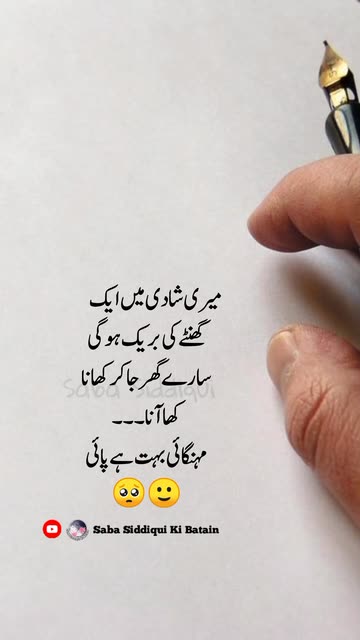 میری شادی میں ایک
گھنٹے کی بریک ہوگی
سارے گھر جا کر کھانا
کھا آنا۔۔۔
مہنگائی بہت ہے پائی
🥺🙂
Saba Siddiqui
Saba Siddiqui Ki Batain